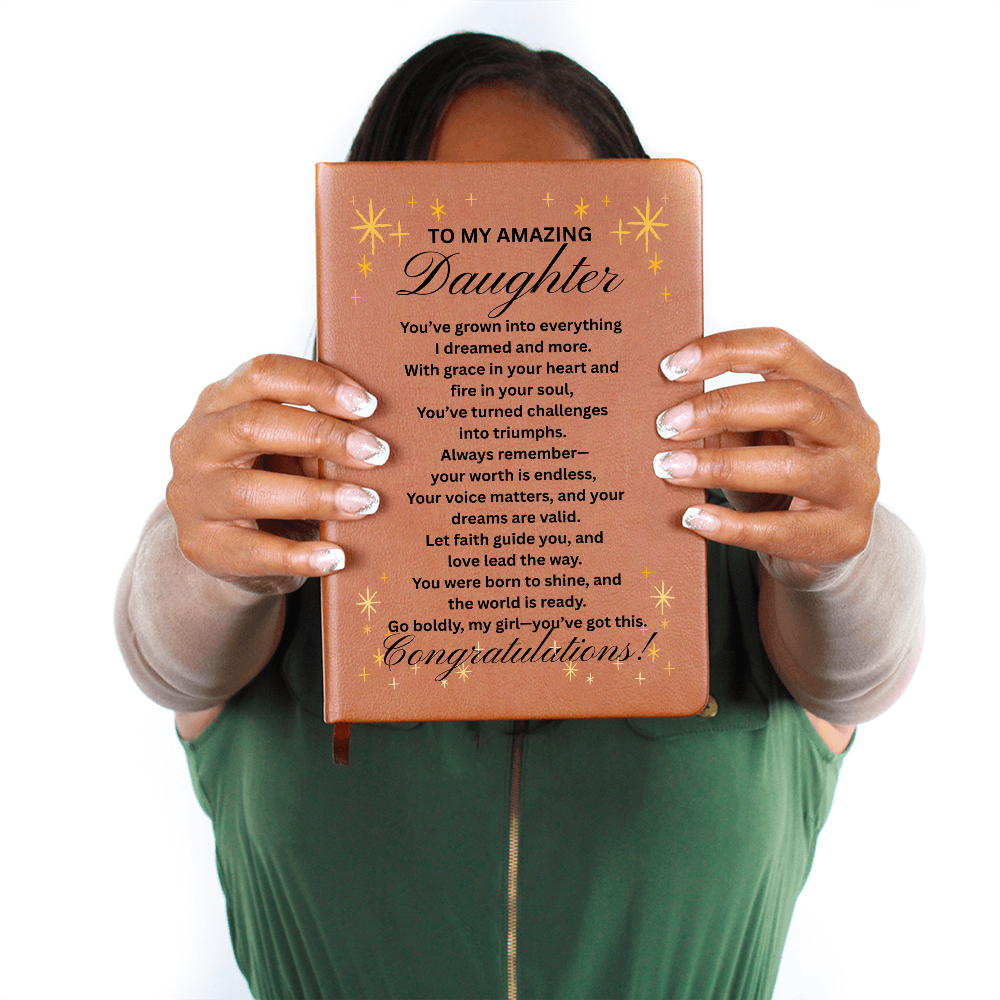 TO MY AMAZING
Daughter
You’ve grown into everything
I dreamed and more.
With grace in your heart and
fire in your soul,
You’ve turned challenges
into triumphs.
Always remember—
your worth is endless,
Your voice matters, and your
dreams are valid.
Let faith guide you, and
love lead the way.
You were born to shine, and
the world is ready.
Go boldly, my girl—you’ve got this.
Congratulations!